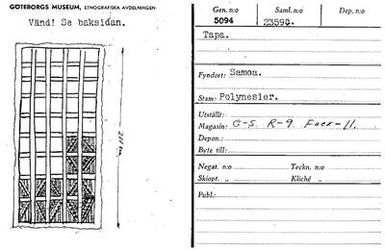 GÖTEBORGS MUSEUM, ETNOGRAFISKA AVDELNINGEN
Vänd! Se baksidan.
Gen. n:o Saml. n:o Dep. n:o
5094 23590.
Tapa.
Fyndort: Samoa.
Stam: Polynesier.
Utställt:
Magasin: G-5. R-9. Fack-11.
Depon.:
Byte till:
Negat. n:o Teckn. n:o
Skiopt. „ Kliché „
Publ.: